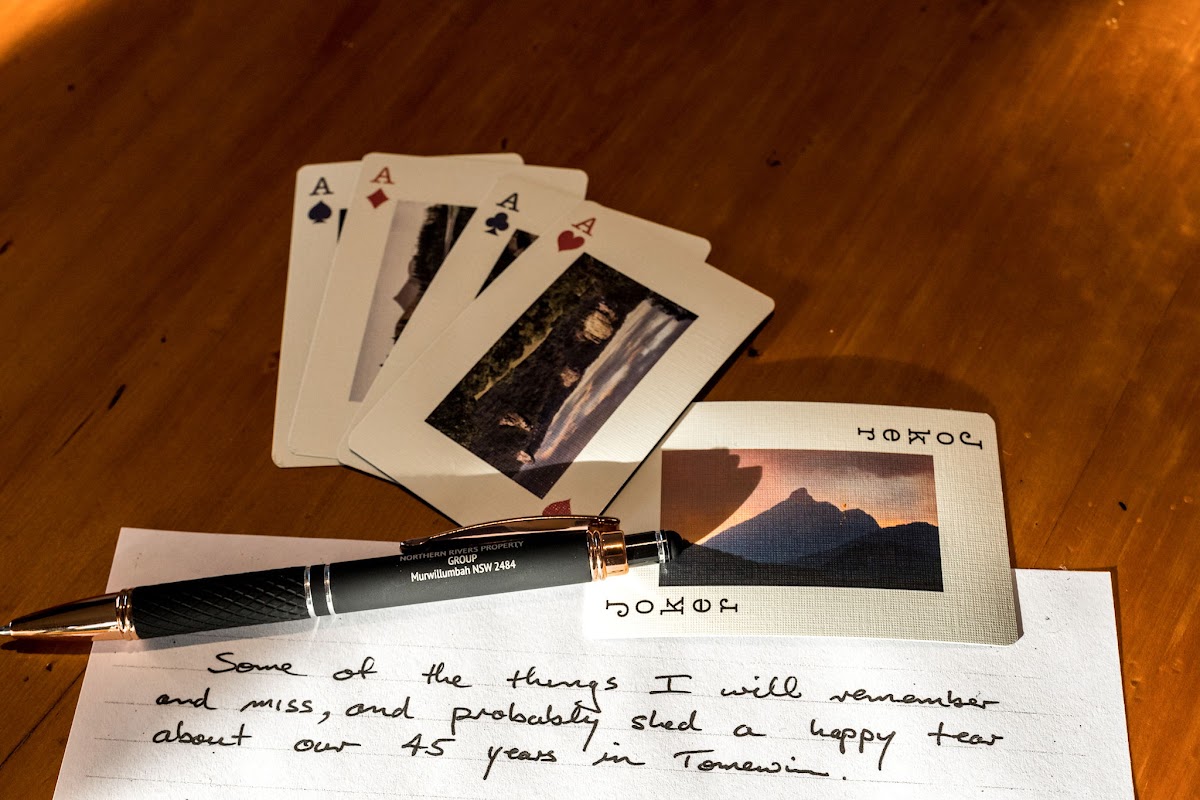 A
A
A
A
Joker
Joker
NORTHERN RIVERS PROPERTY
GROUP
Murwillumbah NSW 2484
Some of the things I will remember
and miss, and probably shed a happy tear
about our 45 years in Tomewin.